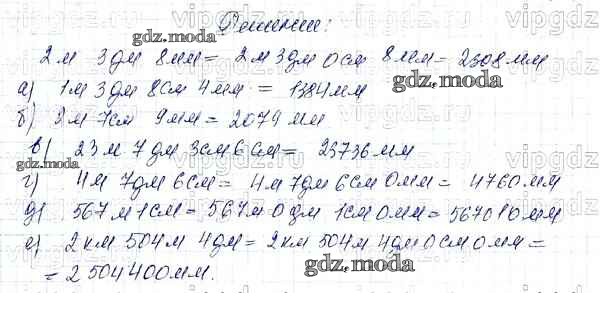 Решение:
2 м 3 дм 8 мм = 2 м 3 дм 0 см 8 мм = 2308 мм
а) 1 м 3 дм 8 см 4 мм = 1384 мм
б) 2 м 7 см 9 мм = 2079 мм
в) 23 м 7 дм 3 см 6 см = 23736 мм
г) 4 м 7 дм 6 см = 4 м 7 дм 6 см 0 мм = 4760 мм
д) 567 м 1 см = 567 м 0 дм 1 см 0 мм = 567010 мм
е) 2 км 504 м 4 дм = 2 км 504 м 4 дм 0 см 0 мм =
= 2 504 400 мм.
gdz.moda
gdz.moda
gdz.moda
gdz.moda
vipgdz.ru